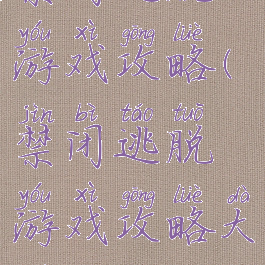 yóu xì gōng lüè
游戏攻略(
jìn bì táo tuō
禁闭逃脱
yóu xì gōng lüè dà
游戏攻略大